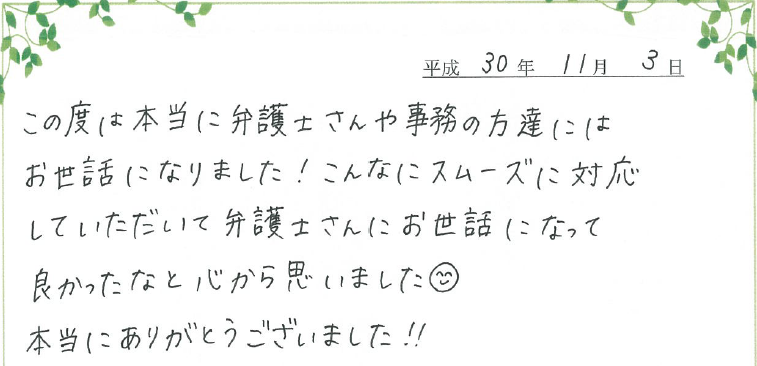 平成 30年 11月 3日
この度は本当に弁護士さんや事務の方達には
お世話になりました！こんなにスムーズに対応
していただいて弁護士さんにお世話になって
良かったなと心から思いました😊
本当にありがとうございました!!